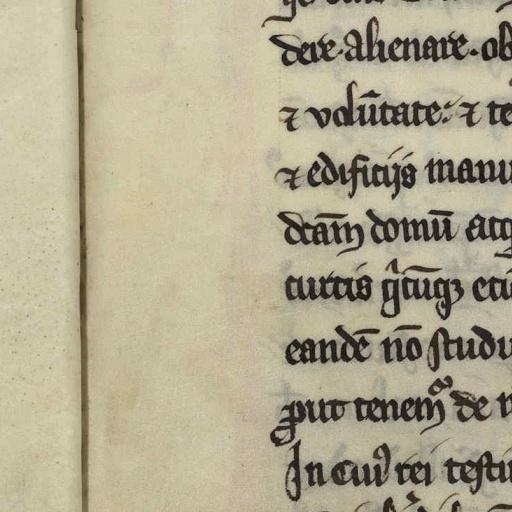 dere · alienare · ob
⁊ volūtate ⁊ te
⁊ edificijs manu
dcām domū acq
curtis
eandē nō studu
ꝓut tenem de
In cui rei testi